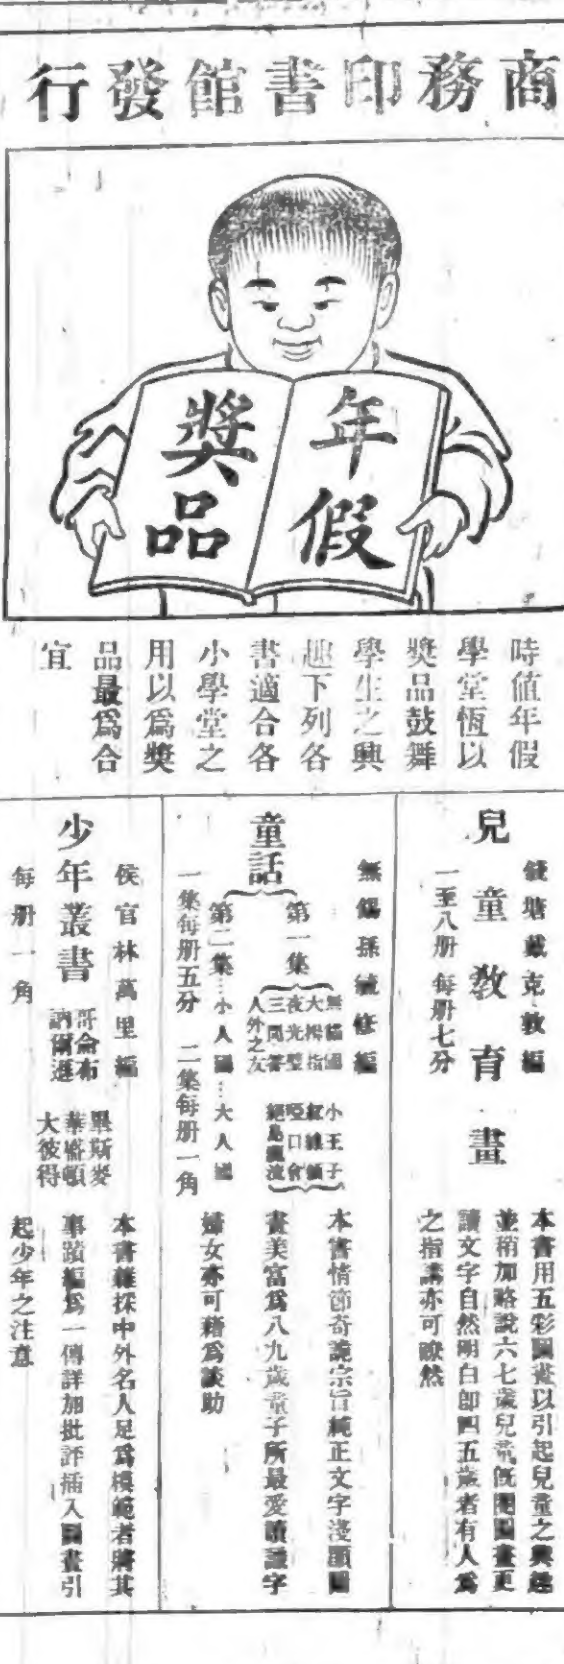 商務印書館發行
年假
獎品
時値年假
學堂恆以
獎品鼓舞
學生之興
趣下列各
書適合各
小學堂之
用以爲獎
品最爲合
宜
錢塘戴克敦編
兒童敎育畫
一至八册 每册七分
本書用五彩圖畫以引起兒童之興趣
並稍加略說六七歲兒童旣閱圖畫更
讀文字自然明白卽四五歲者有人爲
之指講亦可瞭然
無錫孫毓修編
童話
第一集
無貓國
大拇指
夜光璧
三問答
人外之友
小王子
紅線領
啞口會
絕島漂流
第二集…小人國…大人國
一集每册五分 二集每册一角
本書情節奇詭宗旨純正文字淺顯圖
畫美富爲八九歲童子所最愛讀識字
婦女亦可藉爲談助
侯官林萬里編
少年叢書
哥侖布
訥爾遜
畢斯麥
華盛頓
大彼得
每册一角
本書雜採中外名人足爲模範者將其
事蹟編爲一傳詳加批評插入圖畫引
起少年之注意